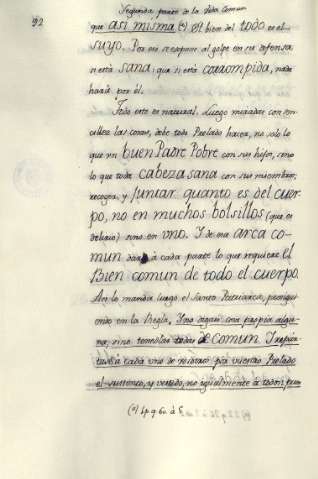 92
Segunda parte de la Vida Comun
que asi misma (*) Al bien del todo es el
suyo. Por eso se expone al golpe en su defensa
si está sana: que si está corrompida, nada
haría por él.
Todo esto es natural. Luego miradas con sen-
cillez las cosas, debe todo Prelado hacer, no solo lo
que un buen Padre Pobre con sus hijos, sino
lo que toda cabeza sana con sus miembros;
recoger, y juntar quanto es del cuer-
po, no en muchos bolsillos (que es
delirio) sino en uno. Y de esa arca co-
mun dar á cada parte lo que requiere el
Bien comun de todo el cuerpo.
Asi lo manda luego el Santo Patriarca, prosigui-
endo en la Regla. Y no digais cosa propia algu-
na, sino tenedlas todas de comun. Y repar-
tase á cada uno de vosotros por vuestro Prelado
el sustento, y vestido, no igualmente á todos, pues